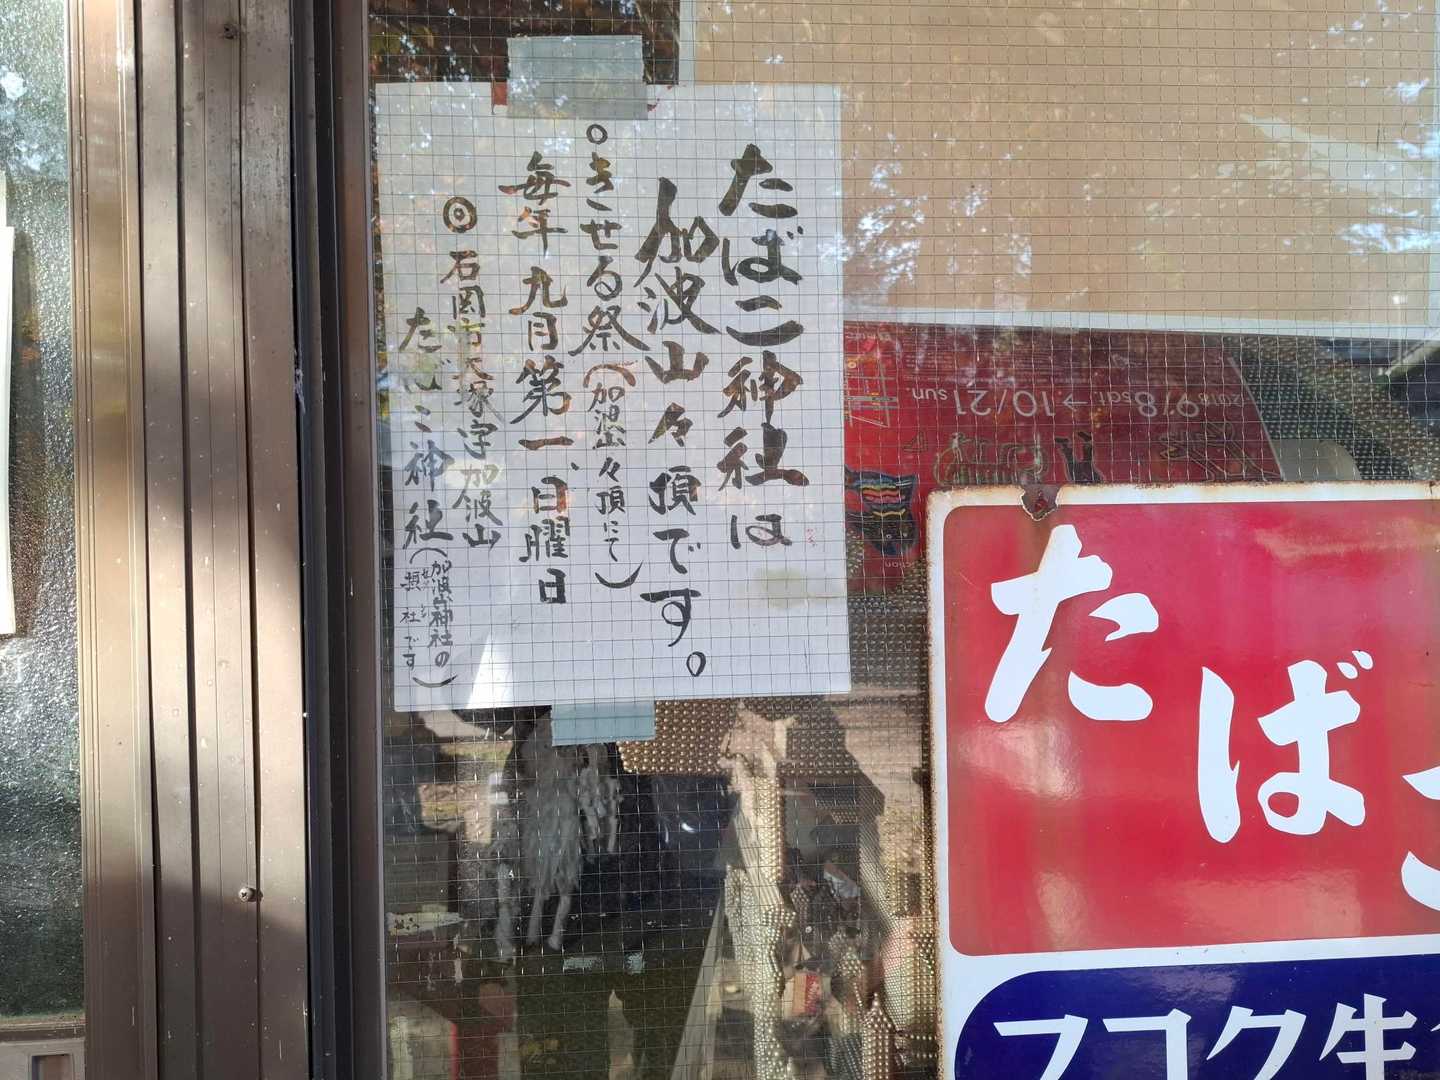 たばこ神社は
加波山々頂です。
○きせる祭(加波山々頂にて)
毎年九月第一、日曜日
◎石岡市大塚字加波山
たばこ神社(加波山神社の
摂社です)
2018 9.8 sat. → 10/21 sun.
たば
フコク生